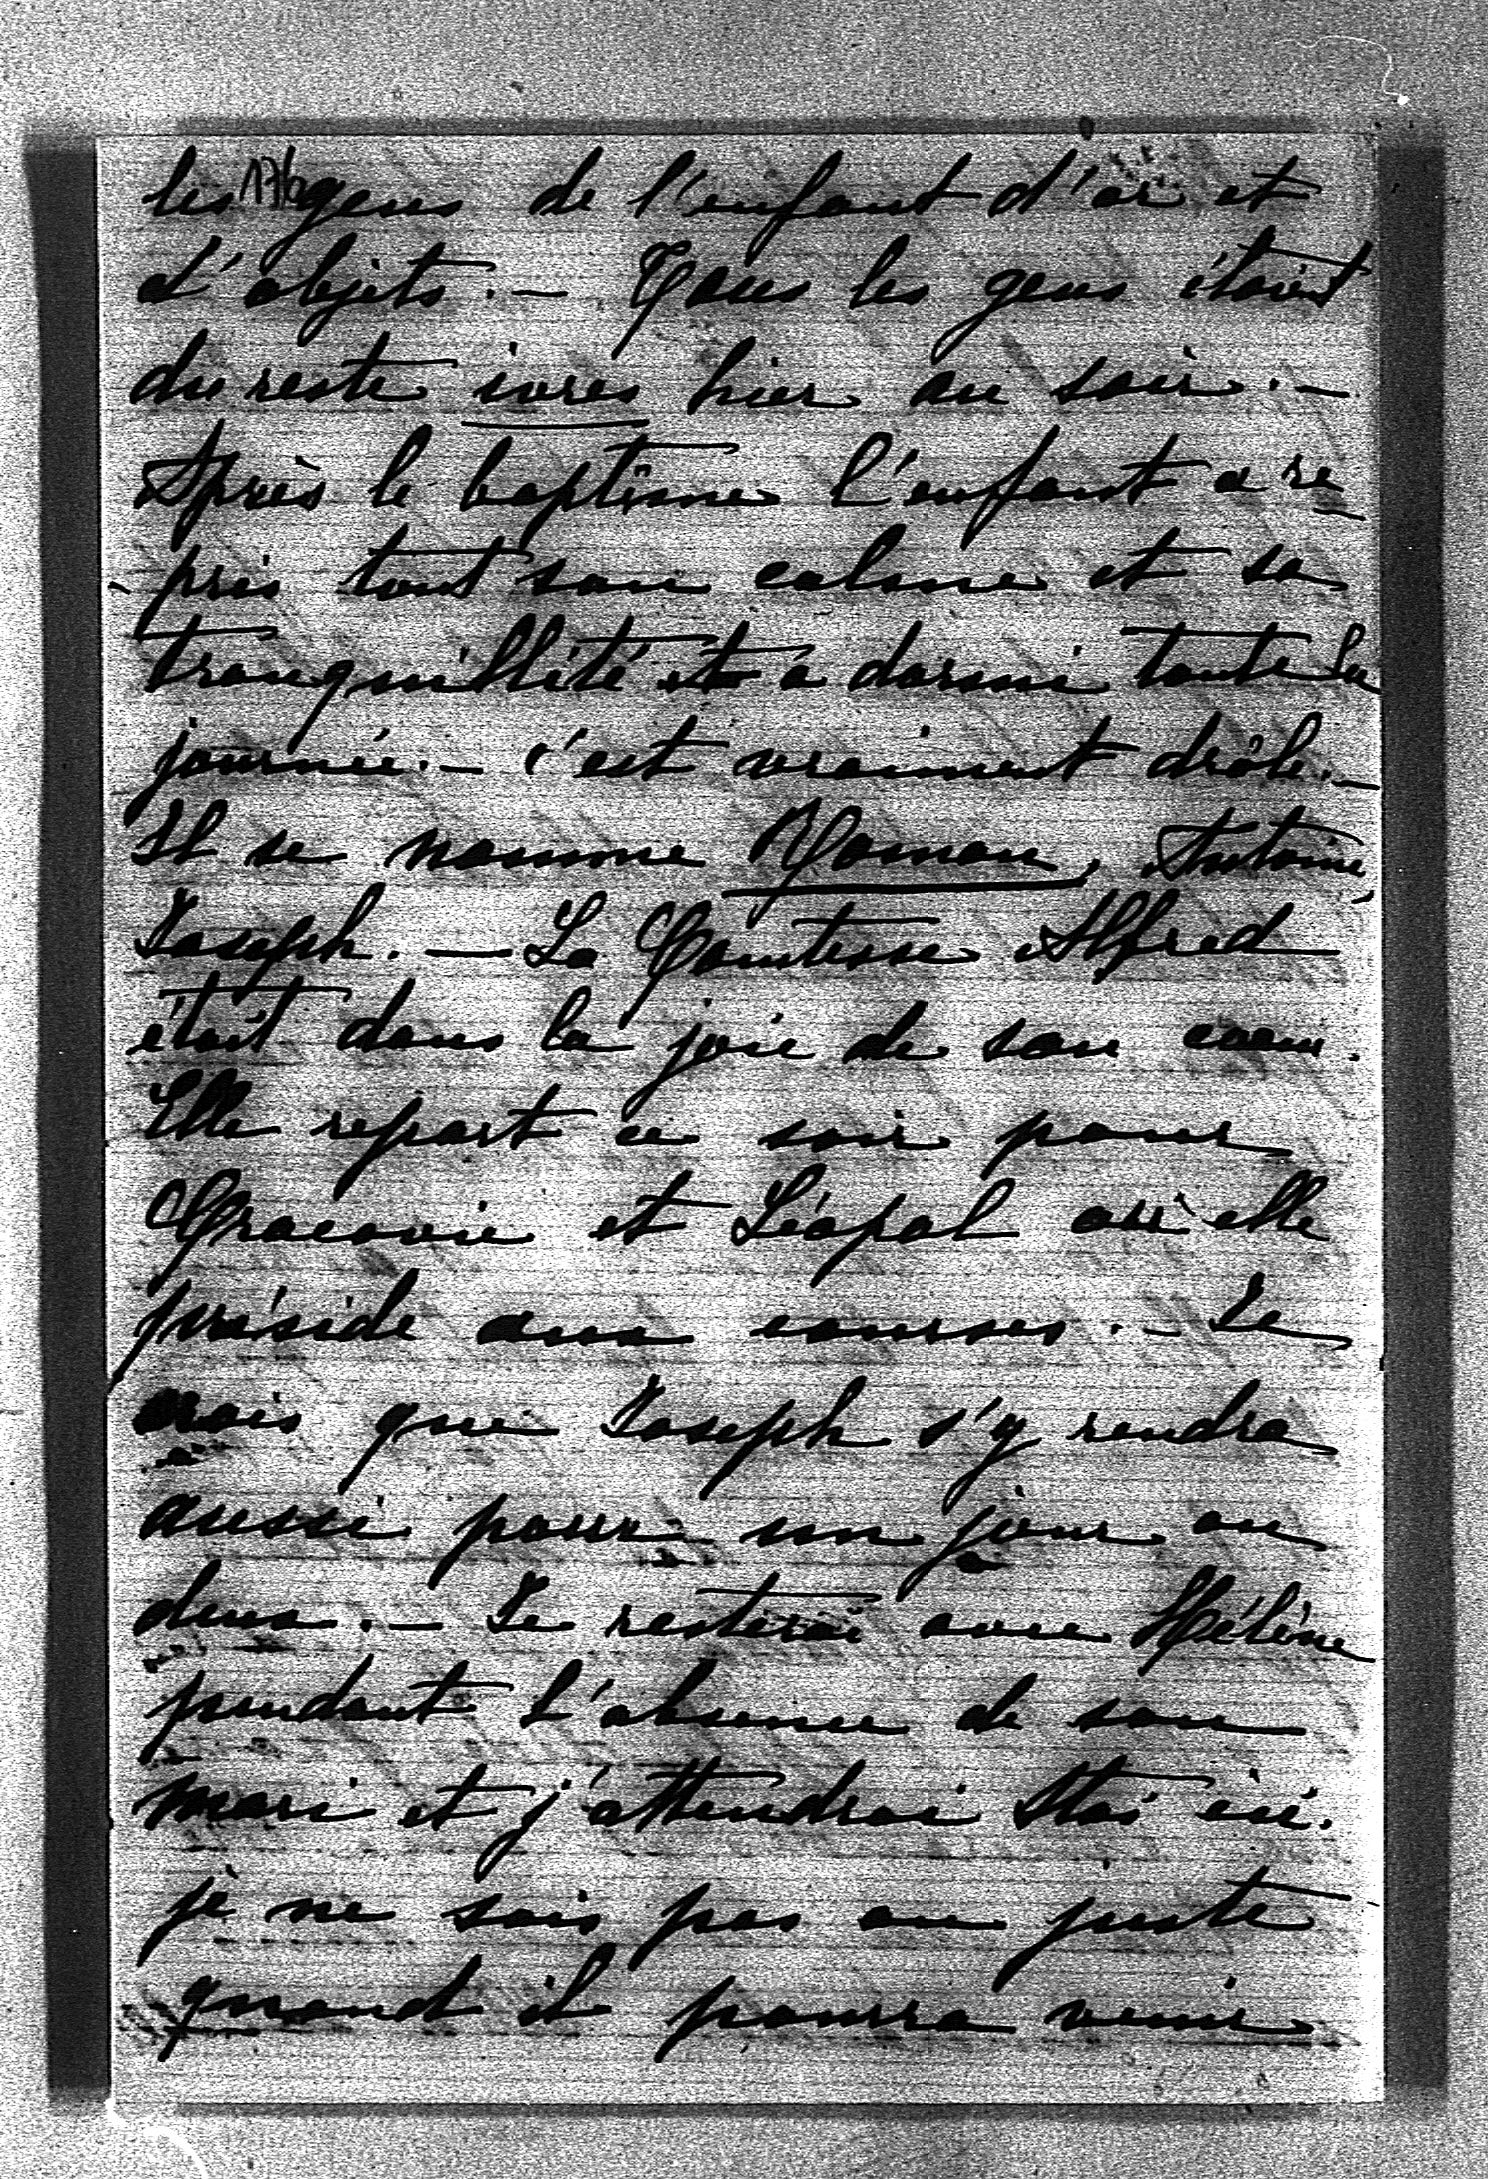 les 176 gens de l'enfant d'or et
d'objets. — Tous les gens étaient
du reste ivres hier au soir. —
Après le baptême l'enfant a re
pris tout son calme et sa
tranquillité et a dormi toute la
journée. — c'est vraiment drôle. —
Il se nomme Roman, Antoine,
Joseph. — La Comtesse Alfred
était dans la joie de son coeur.
Elle repart ce soir pour
Cracovie et Léopol où elle
préside aux courses. — Je
crois que Joseph s'y rendra
aussi pour un jour ou
deux. — Je resterai avec Hélène
pendant l'absence de son
mari et j'attendrai Stas ici.
je ne sais pas au juste
quand il pourra venir